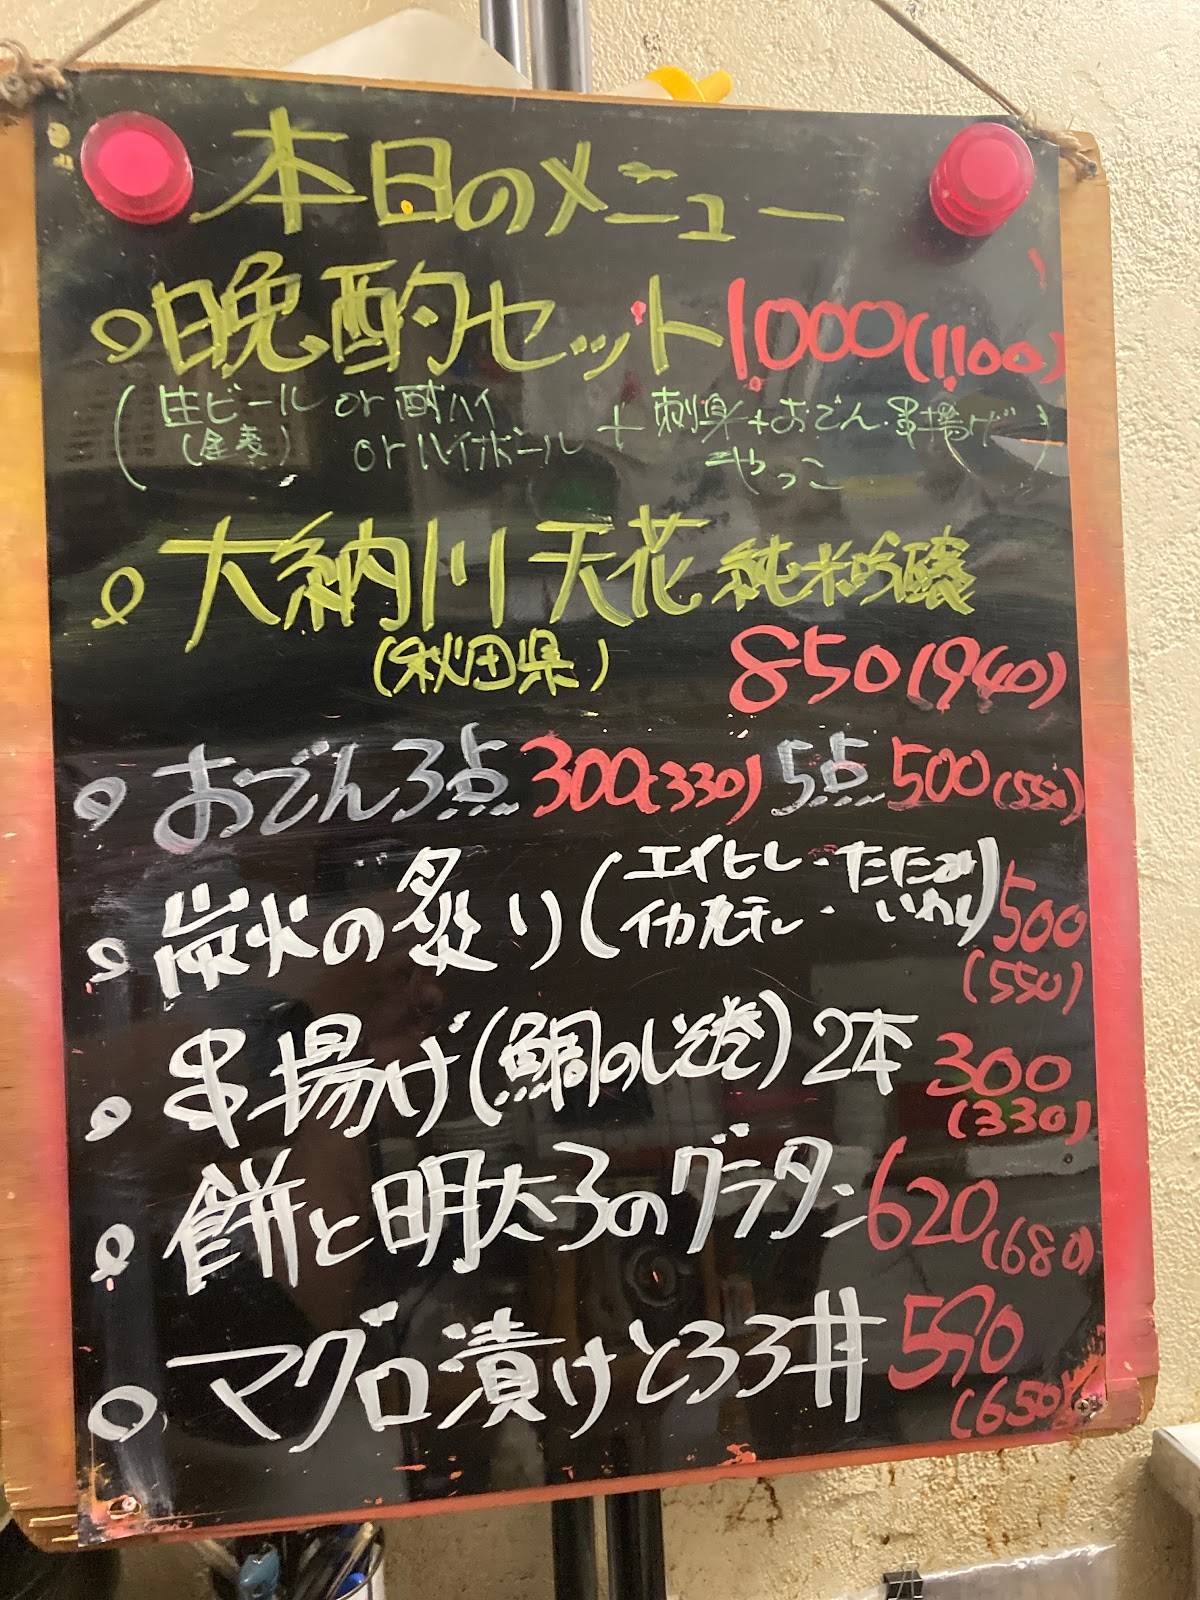 本日のメニュー
晩酌セット 1,000(1,100)
(生ビール or 酎ハイ + 刺身+おでん・串揚げ)
or ハイボール やっこ
大納川 天花 純米吟醸
(秋田県) 850(940)
おでん3点 300(330) 5点 500(550)
炭火の炙り(エイヒレ・たたみいわし 500
イカ (550)
串揚げ(鯛のしそ巻)2本 300
(330)
餅と明太子のグラタン 620(680)
マグロ漬けとろろ丼 590
(650)